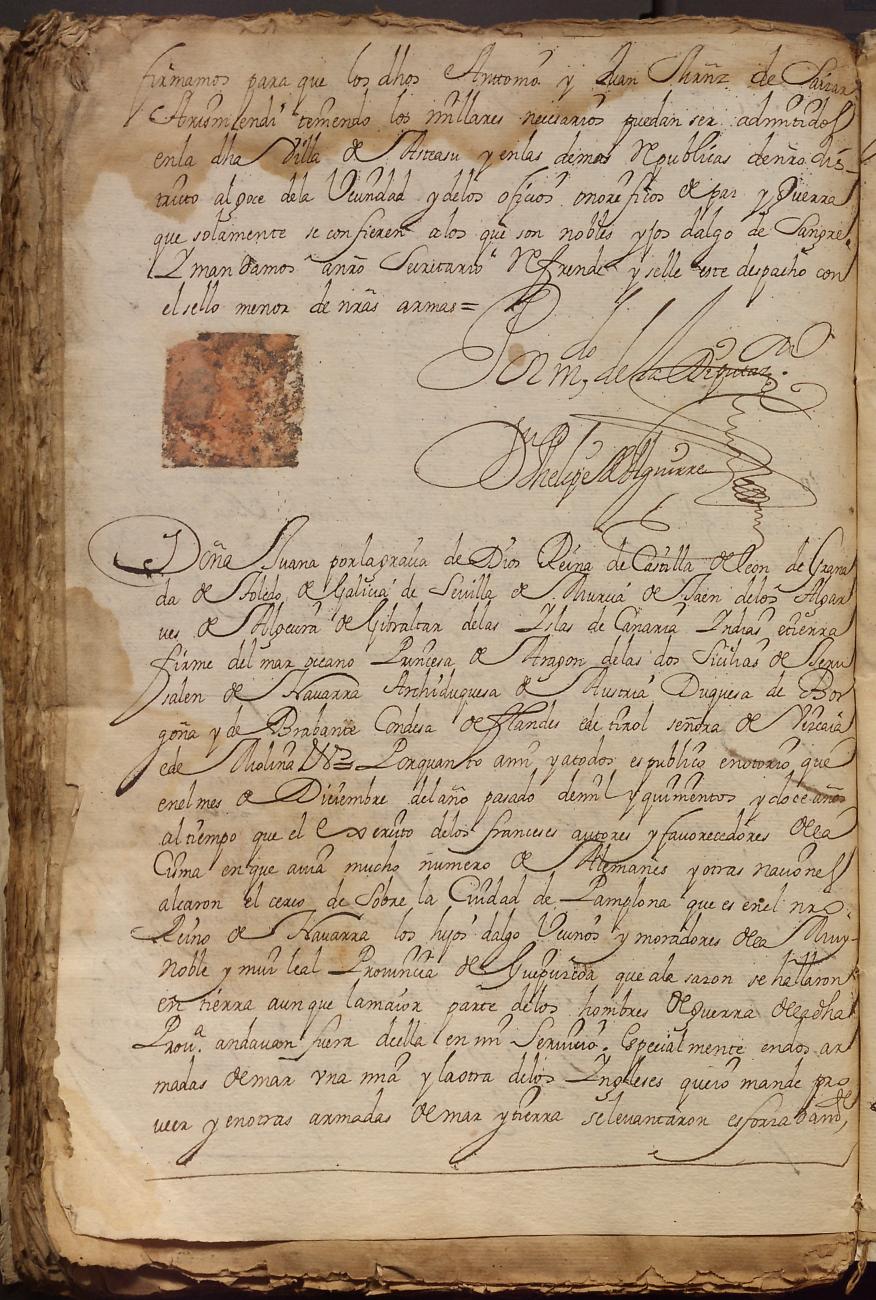 firmamos para que los dhos Anttonio y Juan Mrñz de Saizar
Arismendi teniendo los millares necisarios puedan ser admitidos
en la dha Villa de Asteasu y en las demas Republicas de nro dis-
tricto al goce de la Vecindad y de los oficios onorificos de paz y Guerra
que solamente se confieren a los que son nobles yjos dalgo de Sangre.
Y mandamos a nro Secritario Refrende y selle este despacho con
el sello menor de nras armas=
Por mdo de la
Phelipe de Aguirre
Doña Juana por la gracia de Dios Reina de Castilla de Leon de Grana
da de Toledo de Galicia de Sevilla de Murcia de Jaen de los Algar
ves de Algecira de Gibraltar de las Yslas de Canaria Yndias etierra
firme del mar oceano Princesa de Aragon de las dos Sicilias de Jeru
salen de Navarra Archiduquesa de Austria Duquesa de Bor
goña y de Brabante Condesa de Flandes e de tirol señora de Vizcaia
e de Molina Por quanto a mi y a todos es publico e notorio que
en el mes de Diciembre del año pasado de mil y quinientos y doce años
al tiempo que el Exercito de los franceses autores y favorecedores de la
Cisma en que avia mucho numero de Alemanes y otras naciones
alcaron el cerco de Sobre la Ciudad de Pamplona que es en el nro
Reino de Navarra los hijos dalgo Vecinos y moradores de la Muy
Noble y mui leal Provincia de Guipuzcoa que a la sazon se hallaron
en tierra aunque la maior parte de los hombres de guerra de la dha
Prova. andavan fuera de ella en mi Servicio. Especialmente en dos ar
madas de mar una mia y la otra de los Yngleses que io mande pro
veer y en otras armadas de mar y tierra se levantaron esforzadamte,